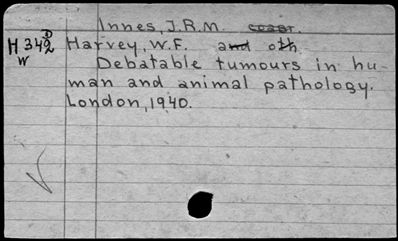 Innes, J.R.M. coaut.
H 342 Harvey, W.F. and oth.
W Debatable tumours in hu-
man and animal pathology.
London, 1940.